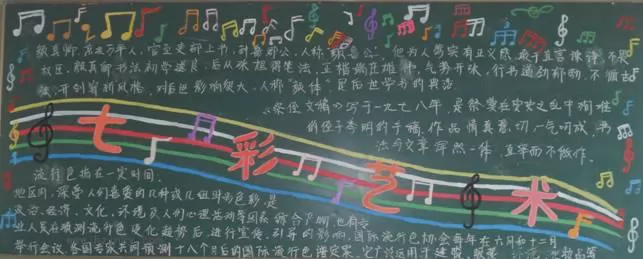 颜真卿,京兆万年人,官至吏部上书,封鲁郡公,人称"颜鲁公"。他为人笃实有正义感,敢于直言,不
权臣。颜真卿书法初学褚良,后从张旭得笔法,正楷端庄雄伟,气势开张,行书遒劲郁勃,不
法,开创新的风格,对后世影响很大,人称"颜体",是后世学书的典范
《祭侄文稿》写于一九七八年,是祭
的侄子季明的手稿,作品情真意切,一气呵成,书
法与文章浑然一体,直率而不做作。
七彩艺术
流行色指在一定时间、
地区内,深受人们喜爱的几种或几组时尚色彩,是
政治、经济、文化、环境及人们心理活动等因素综合产物,也有
业人员在预测流行色变化趋势后,进行宣传、引导的影响,国际流行色协会每年在六月和十二月
举行会议,各国专家共同预测十八个月后的国际流行色谱定案,它广泛运用于建筑、服装